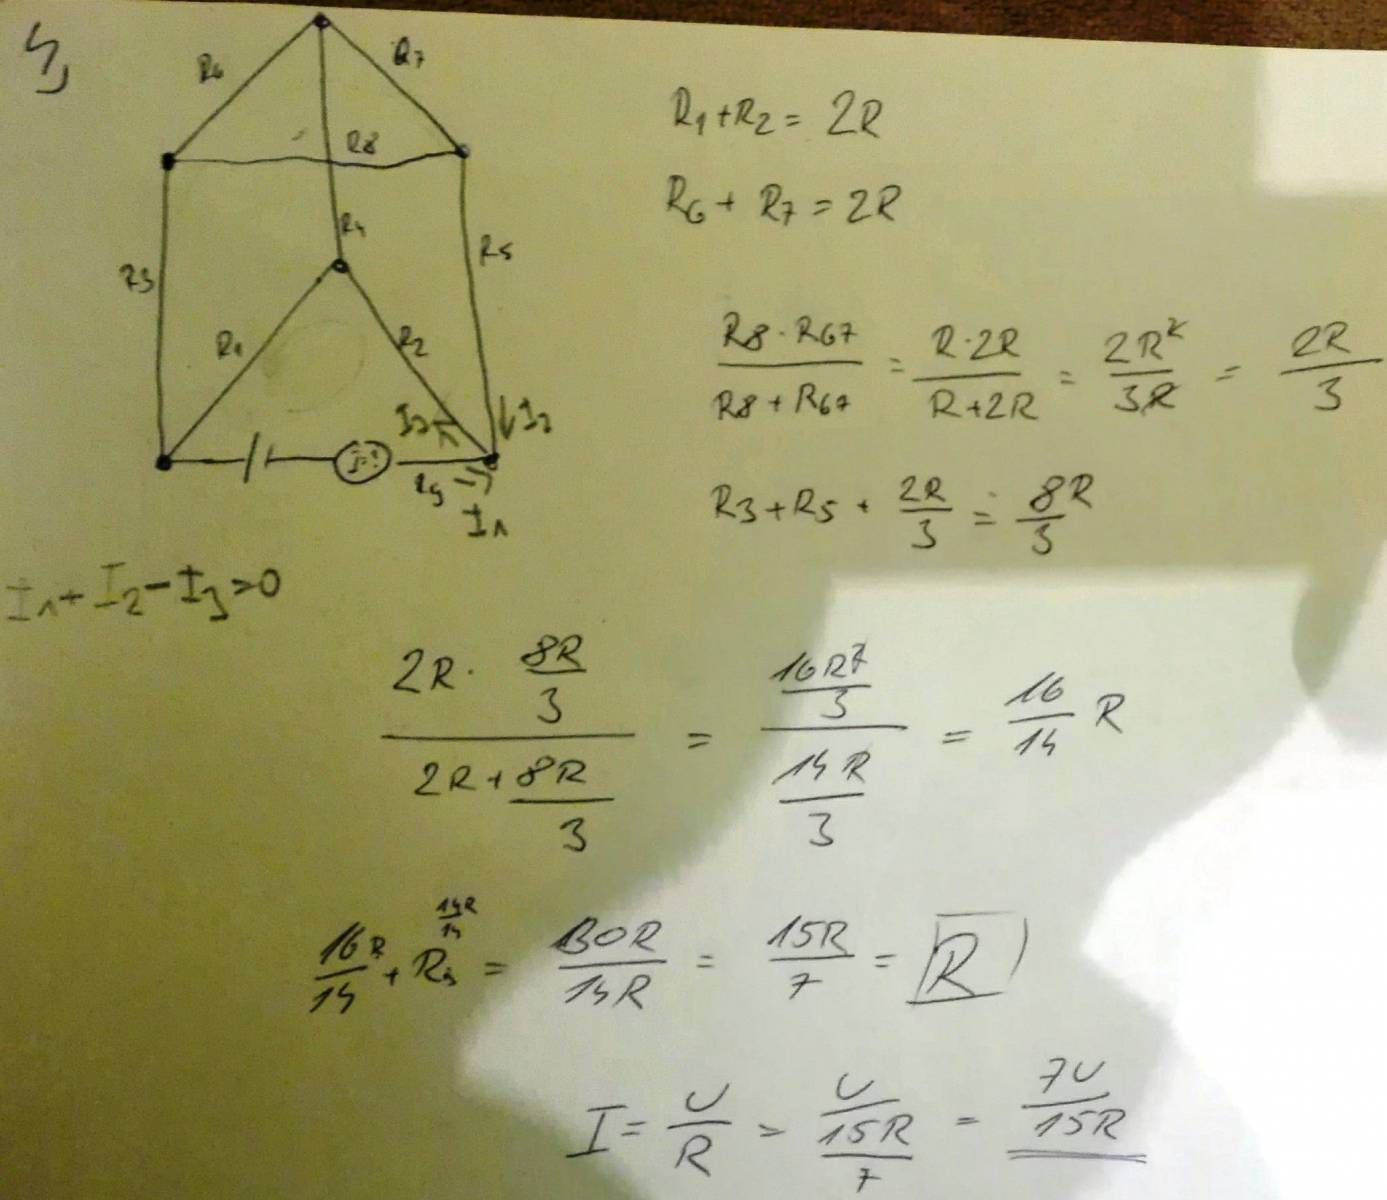 4)
R6
R7
R8
R4
R3
R5
R1
R2
I3
I2
I=?
R9
I1
R1+R2 = 2R
R6 + R7 = 2R
R8 · R67 / R8 + R67 = R·2R / R+2R = 2R² / 3R = 2R / 3
R3+R5 + 2R/3 = 8R/3
I1 + I2 - I3 = 0
2R · 8R/3 / 2R + 8R/3 = 16R²/3 / 14R/3 = 16/14 R
14R/14
16R/14 + R9 = 30R/14R = 15R/7 = R
I = U/R = U / 15R/7 = 7U/15R